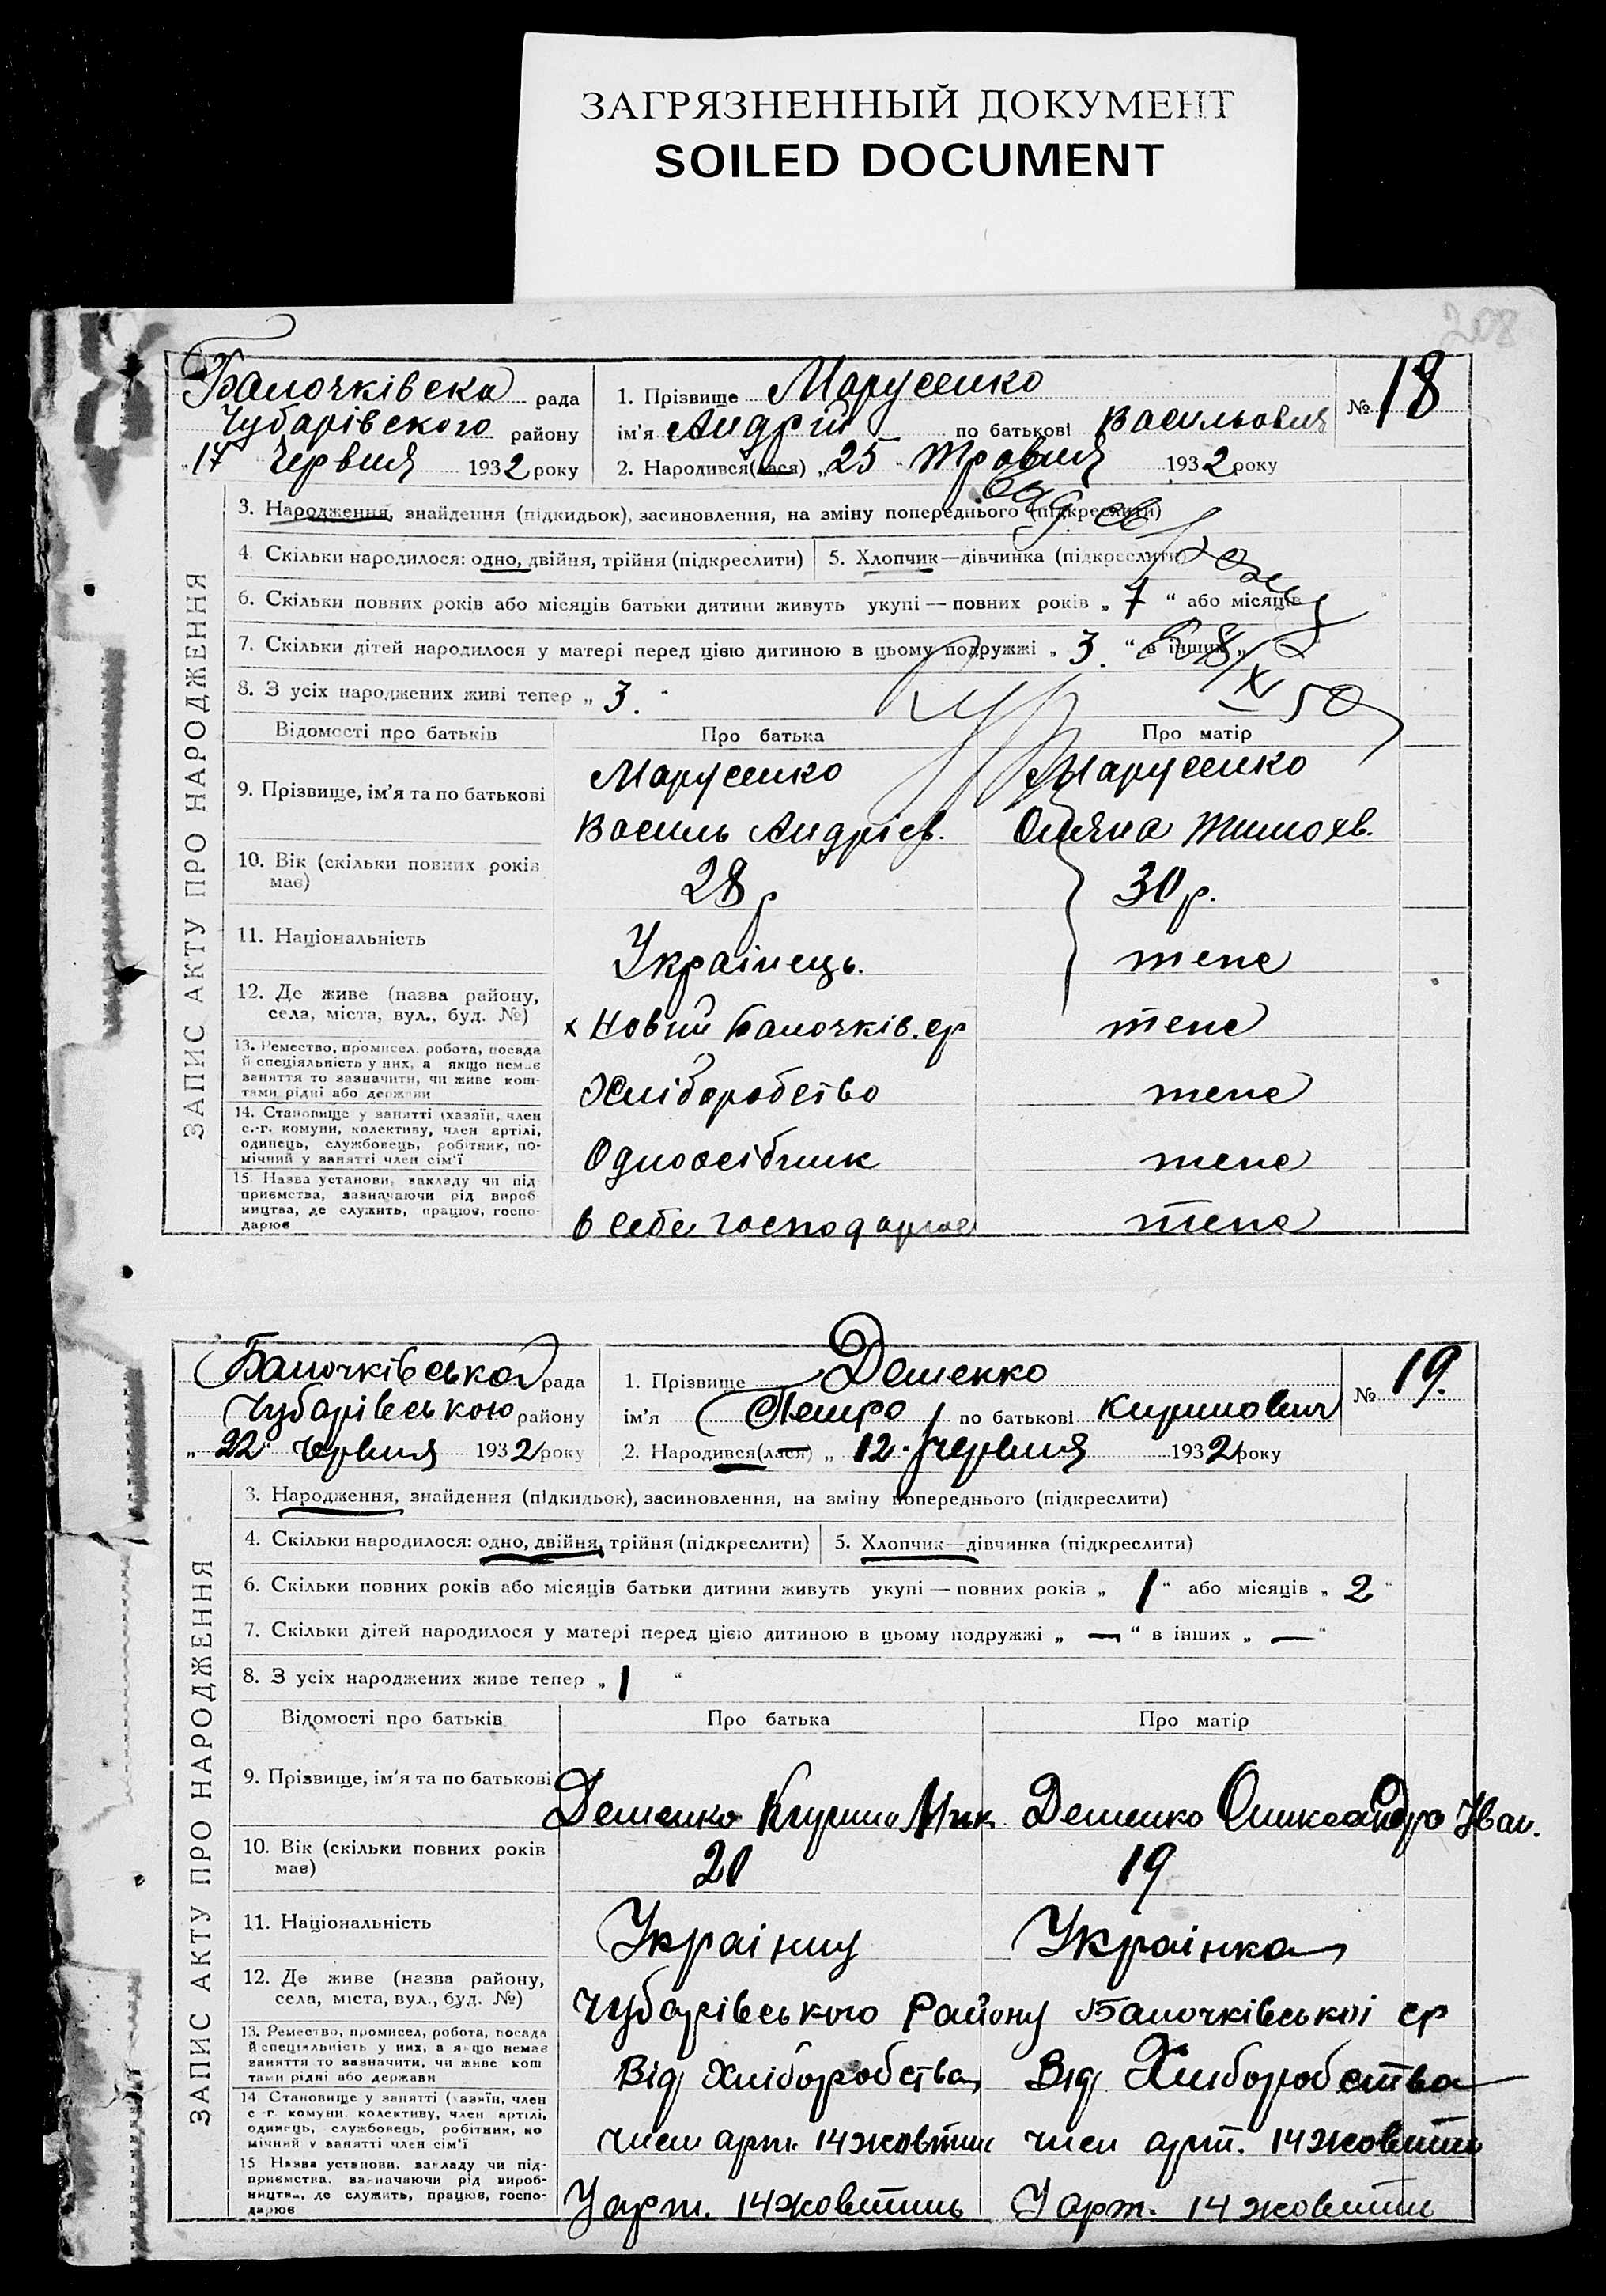 ЗАГРЯЗНЕННЫЙ ДОКУМЕНТ
SOILED DOCUMENT
208
Балочківска рада
Чубарівского району
„17 Червня 1932 року
1. Прізвище Марусенко
ім'я Андрій по батькові Васильовия
2. Народився(лася) „25 Травня 1932 року
№ 18
ЗАПИС АКТУ ПРО НАРОДЖЕННЯ
3. Народження, знайдення (підкидьок), засиновлення, на зміну попереднього (підкреслити)
4. Скільки народилося: одно, двійня, трійня (підкреслити)
5. Хлопчик—дівчинка (підкреслити)
6. Скільки повних років або місяців батьки дитини живуть укупі — повних років „ 7 “ або місяців
7. Скільки дітей народилося у матері перед цією дитиною в цьому подружжі „ 3. “ в інших „
8. З усіх народжених живі тепер „ 3. “
8/X 50
Відомості про батьків
Про батька
Про матір
9. Прізвище, ім'я та по батькові
Марусенко
Василь Андрієв.
Марусенко
Оляна Тимохв.
10. Вік (скільки повних років має)
28 р
30 р.
11. Національність
Українець.
теж
12. Де живе (назва району,
села, міста, вул., буд. №)
х Новий Балочків. ср
теж
13. Ремество, промисел, робота, посада
й спеціяльність у них, а якщо немає
заняття то зазначити, чи живе кош-
тами рідні або держави
Хліборобство
теж
14. Становище у занятті (хазяїн, член
с.-г. комуни, колективу, член артілі,
одинець, службовець, робітник, по-
мічний у занятті член сім'ї
Одноосібник
теж
15. Назва установи, закладу чи під
приємства, зазначаючи рід вироб
ництва, де служить, працює, госпо-
дарює
в себе господарює
теж
Балочківська рада
Чубарівською району
„ 22 “ Червня 1932 року
1. Прізвище Деменко
ім'я Петро по батькові Кирилович
2. Народився(лася) „ 12. Червня 1932 року
№ 19.
ЗАПИС АКТУ ПРО НАРОДЖЕННЯ
3. Народження, знайдення (підкидьок), засиновлення, на зміну попереднього (підкреслити)
4. Скільки народилося: одно, двійня, трійня (підкреслити)
5. Хлопчик—дівчинка (підкреслити)
6. Скільки повних років або місяців батьки дитини живуть укупі — повних років „ 1 “ або місяців „ 2 “
7. Скільки дітей народилося у матері перед цією дитиною в цьому подружжі „ — “ в інших „ — “
8. З усіх народжених живе тепер „ 1 “
Відомості про батьків
Про батька
Про матір
9. Прізвище, ім'я та по батькові
Деменко Кирило Мик.
Деменко Олександра Іван.
10. Вік (скільки повних років
має)
20
19
11. Національність
Українка
12. Де живе (назва району,
села, міста, вул., буд. №)
Чубарівського Району Балочківської ср
13. Ремество, промисел, робота, посада
й спеціяльність у них, а якщо немає
заняття то зазначити, чи живе кош
тами рідні або держави
Від Хліборобства
Від Хліборобства
14 Становище у занятті (хазяїн, член
с -г. комуни, колективу, член артілі,
одинець, службовець, робітник, по
мічний у занятті член сім'ї
член арт. 14 жовтня
член арт. 14 жовтня
15 Назва установи, закладу чи під-
приємства, зазначаючи рід вироб-
ництва, де служить, працює, госпо-
дарює
У арт. 14 жовтня
У арт. 14 жовтня